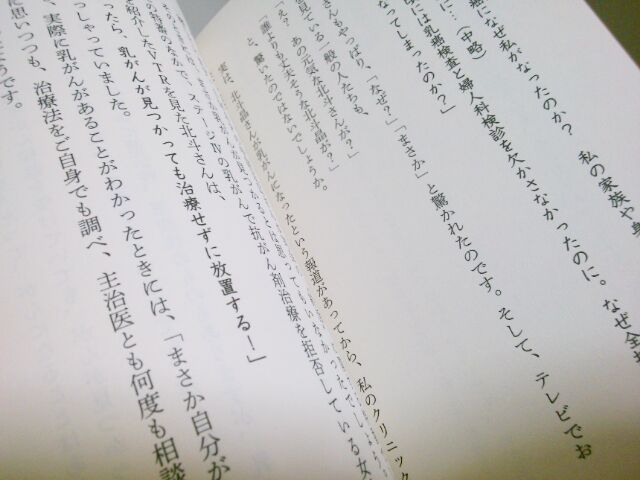 癌になぜ私がなったのか? 私の家族や身
に…(中略)
には乳癌検査と婦人科検診を欠かさなかったのに。なぜ全摘
なってしまったのか?」
さんもやっぱり、「なぜ?」「まさか」と驚かれたのです。そして、テレビでお
見ている一般の人たちも、
「え? あの元気な北斗さんが?」
「誰よりも丈夫そうな北斗晶が?」
と、驚いたのではないでしょうか。
実は、北斗晶さんが乳がんになったという報道があってから、私のクリニック
の特番のなかで、ステージⅣの乳がんで抗がん剤治療を拒否している女
を紹介したVTRを見た北斗さんは、
ったら、乳がんが見つかっても治療せずに放置する!」
っしゃっていました。
、実際に乳がんがあることがわかったときには、「まさか自分が
に思いつつも、治療法をご自身でも調べ、主治医とも何度も相談
たようです。